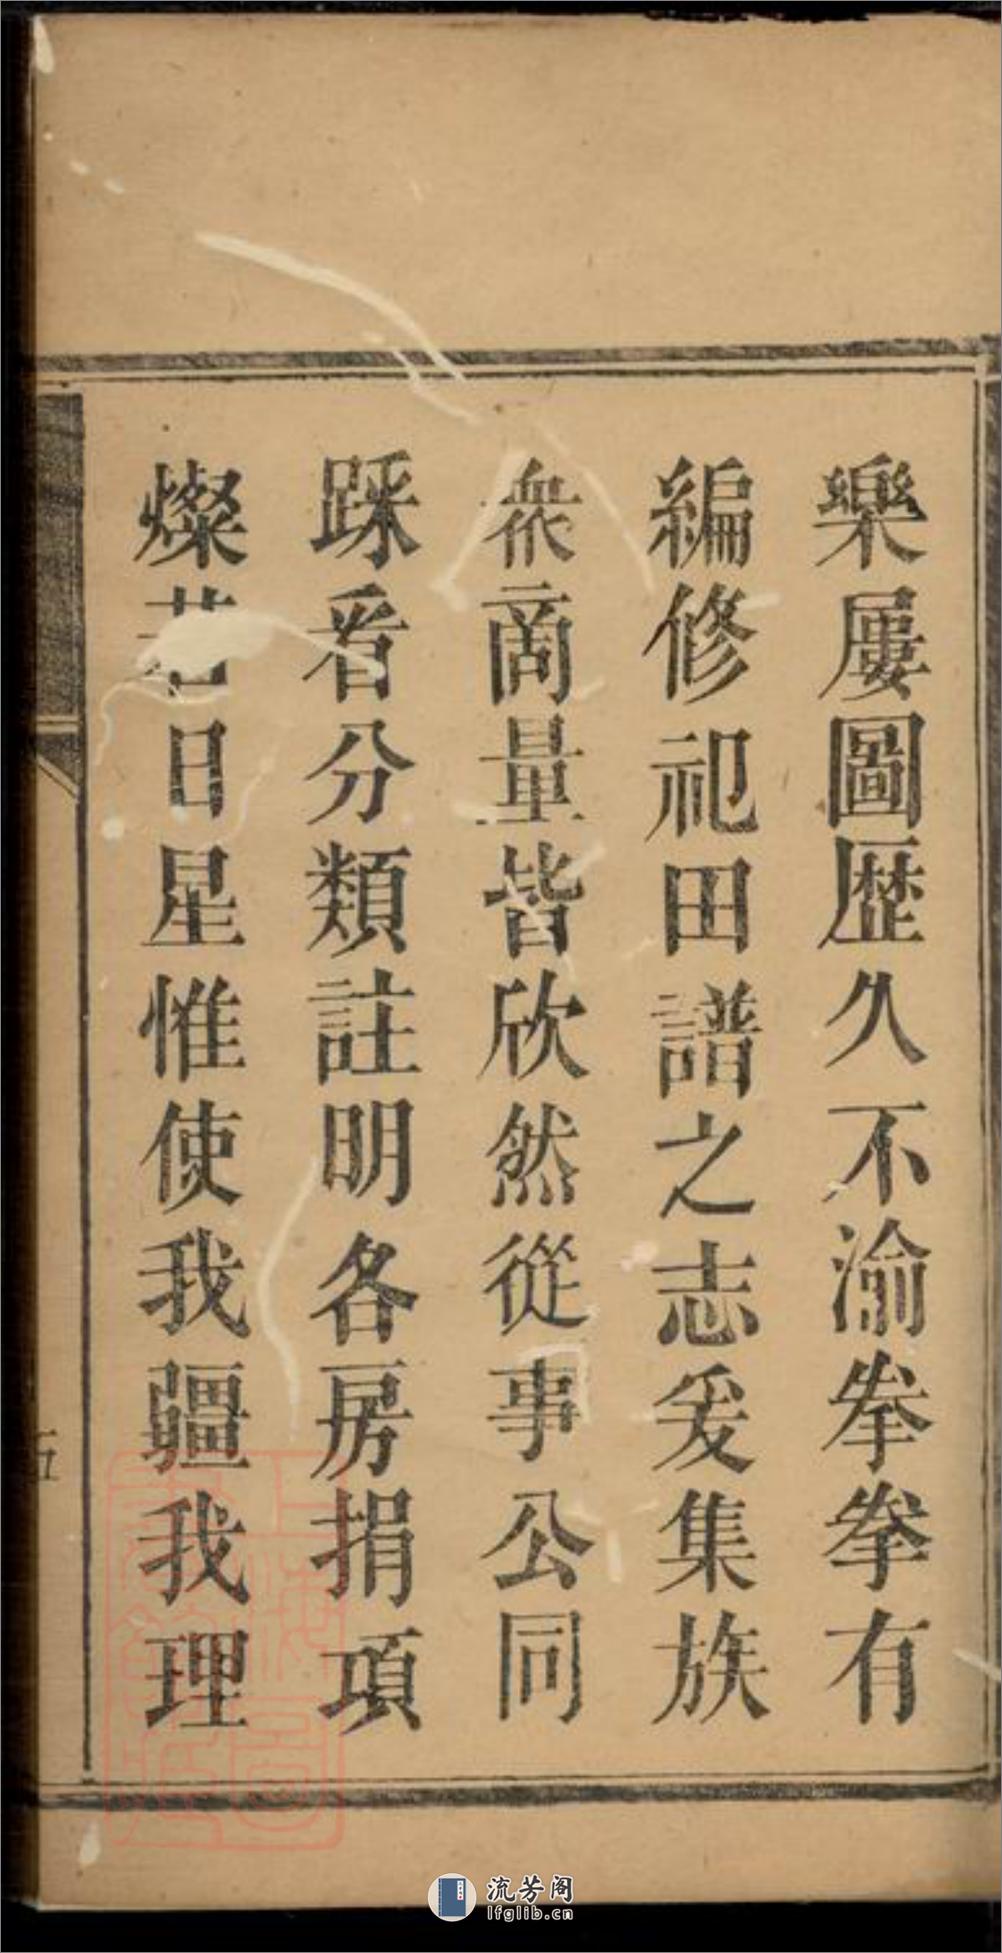 樂屢圖歷久不渝拳拳有
編修祀田譜之志爰集族
衆商量皆欣然從事公同
踩看分類註明各房捐項
燦若日星惟使我疆我理
五
流芳阁
lfglib.cn